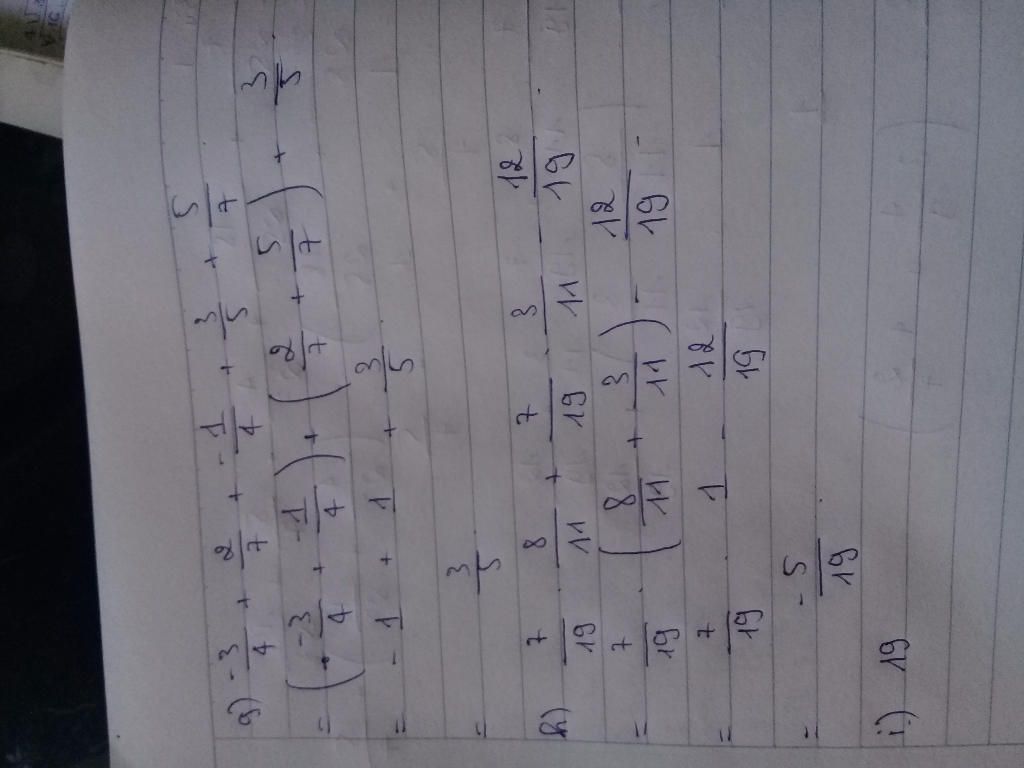 g) -3/4 + 2/7 + -1/4 + 3/5 + 5/7
= (-3/4 + -1/4) + (2/7 + 5/7) + 3/5
= -1 + 1 + 3/5
= 3/5
h) 7/19 . 8/11 + 7/19 . 3/11 - 12/19
= 7/19 . (8/11 + 3/11) - 12/19
= 7/19 . 1 - 12/19
= -5/19
i) 19